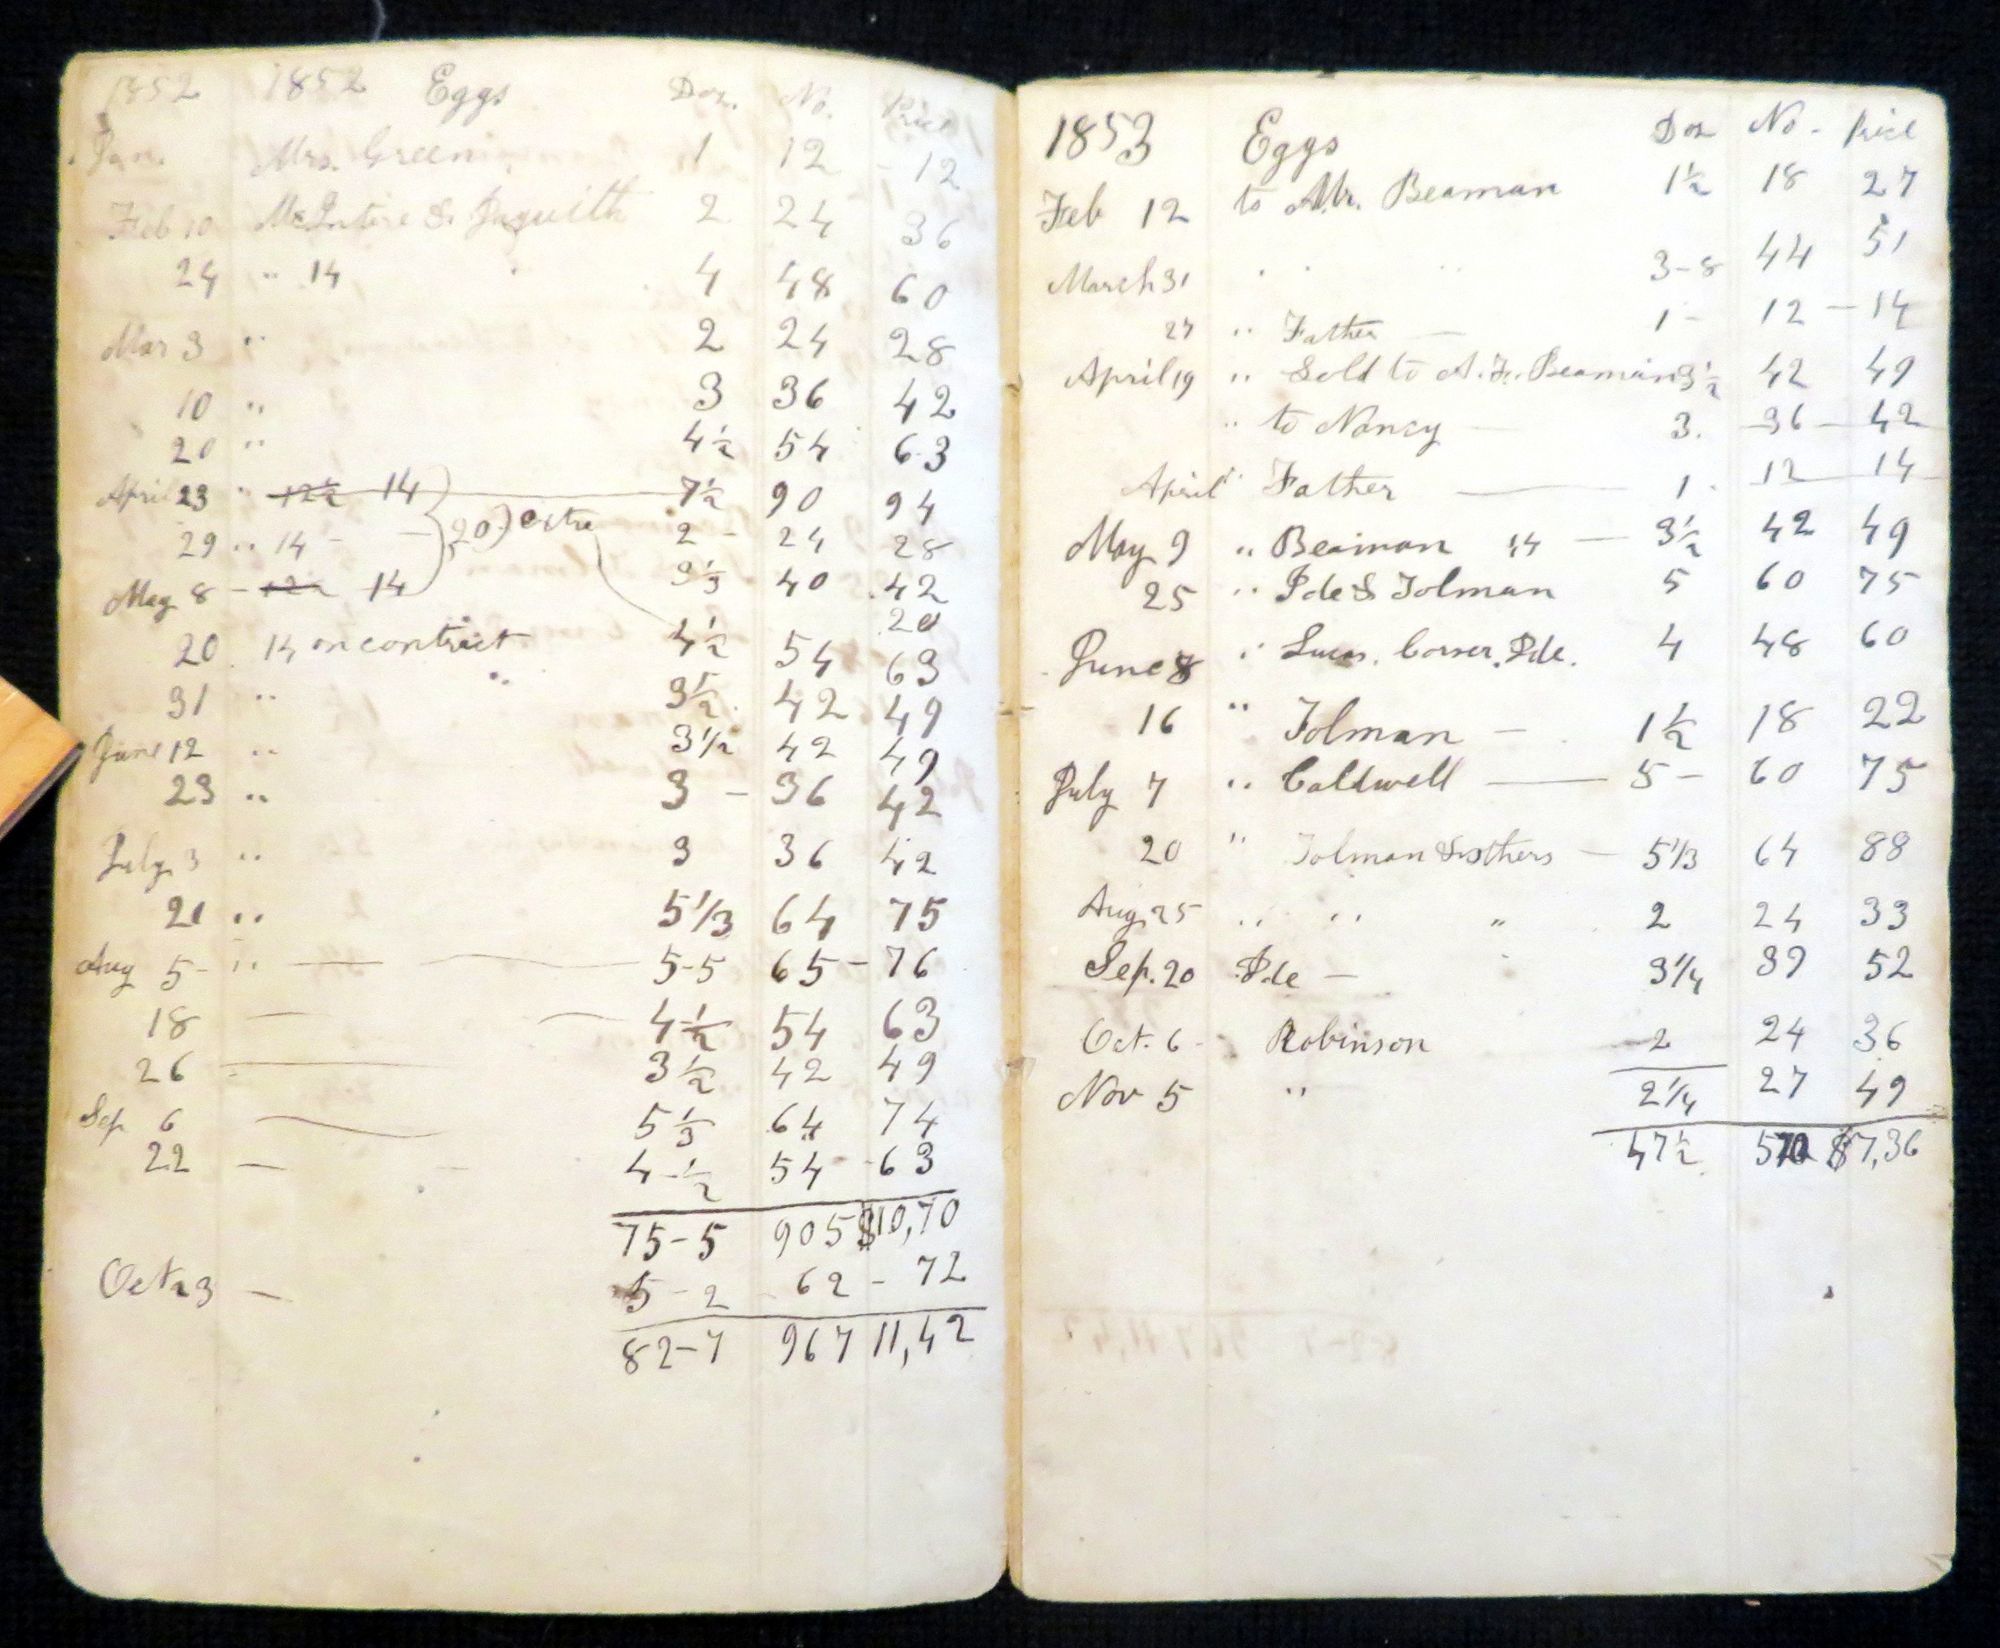 1852 1852 Eggs Doz. No. Price
Jan. Mrs. Green 1 12 - 12
Feb 10 McIntire & Jaquith 2 24 36
24 " 14 4 48 60
Mar 3 " 2 24 28
10 " 3 36 42
20 " 4½ 54 63
April 23 " 12½ 14 7½ 90 94
29 " 14 - - 20) extra 2 - 24 28
May 8 - 12½ 14 3⅓ 40 42
20
20 14 on contract 4½ 54 63
31 " " 3½ 42 49
June 12 " 3½ 42 49
23 " 3 - 36 42
July 3 " 3 36 42
21 " 5⅓ 64 75
Aug 5 - " 5-5 65 - 76
18 4½ 54 63
26 3½ 42 49
Sep 6 5⅓ 64 74
22 — 4-½ 54 - 63
75-5 905 $10,70
Oct 23 — 5-2 62 - 72
82-7 967 11,42
1853 Eggs Doz No. Price
Feb 12 to Mr. Beaman 1½ 18 27
March 31 " " 3-8 44 51
27 " Father — 1 - 12 - 14
April 19 " Sold to A. F. Beaman 3½ 42 49
" to Nancy — 3. 36 - 42
April " Father — 1 - 12 14
May 9 " Beaman 14 — 3½ 42 49
25 " Ide & Tolman 5 60 75
June 8 " Lucas, Corser, Ide. 4 48 60
16 " Tolman — 1½ 18 22
July 7 " Caldwell — 5 - 60 75
20 " Tolman & others — 5⅓ 64 88
Aug 25 " " " 2 24 33
Sep. 20 Ide — 3¼ 39 52
Oct. 6 - Robinson 2 24 36
Nov 5 " 2¼ 27 49
47½ 570 $7,36